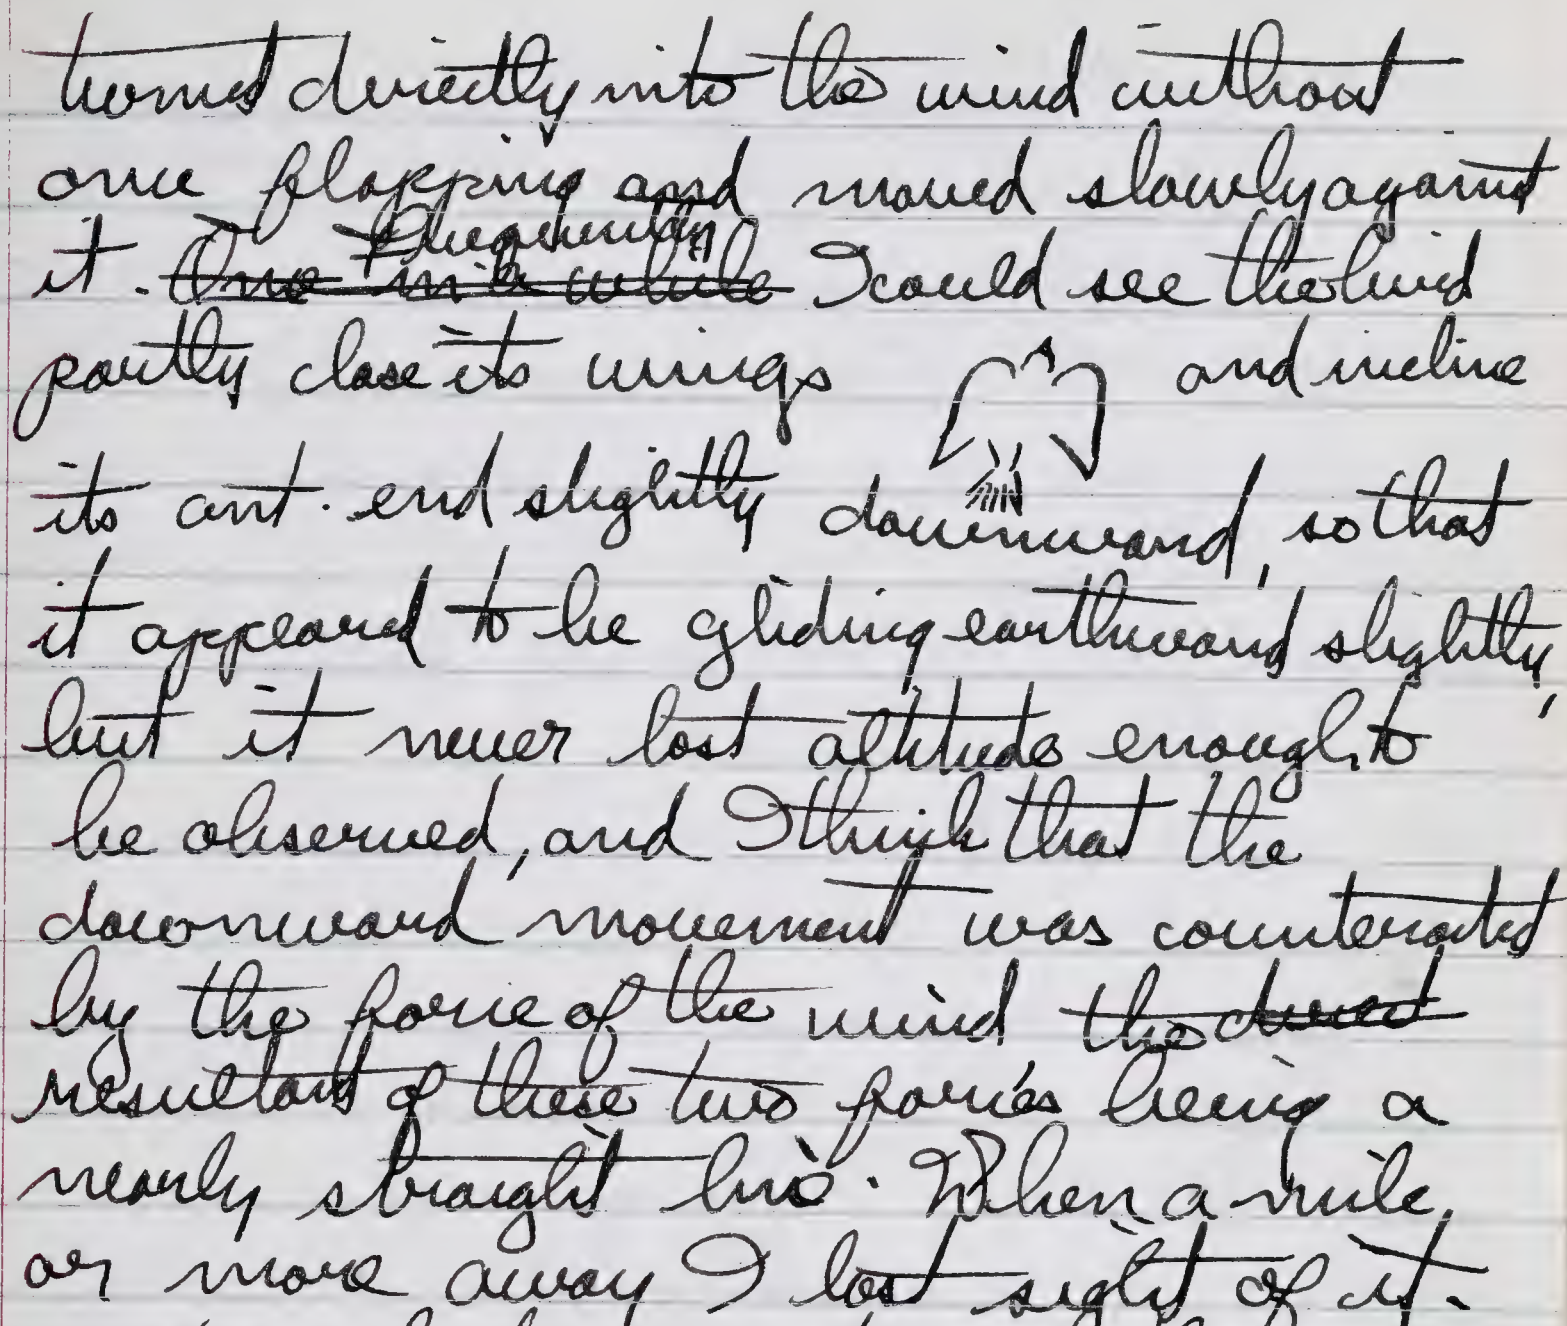 turned directly into the wind without
once flapping and moved slowly against
it. Once in a while Frequently I could see the bird
partly close its wings and incline
its ant. end slightly downward, so that
it appeared to be gliding earthward slightly,
but it never lost altitude enough to
be observed, and I think that the
downward movement was counteracted
by the force of the wind, the direct
resultant of these two forces being a
nearly straight line. When a mile
or more away I lost sight of it.